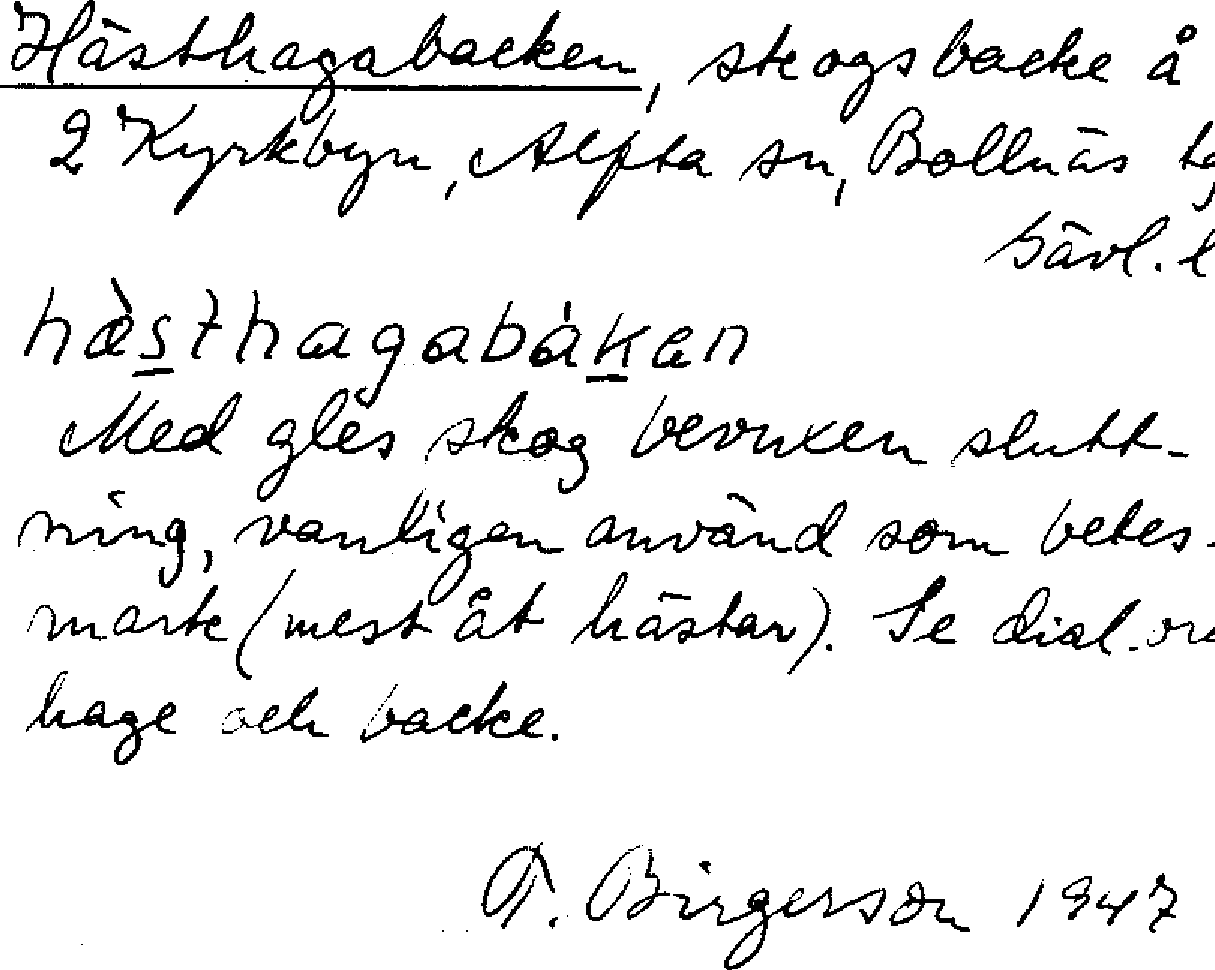 Hästhagabacken, skogsbacke å
2 Kyrkbyn, Alfta sn, Bollnäs
Gävl. l
hæ̀sthagabàkan
Med gles skog bevuxen slutt-
ning, vanligen använd som betes-
mark (mest åt hästar). Se dial.
hage och backe.
T. Birgerson 1947